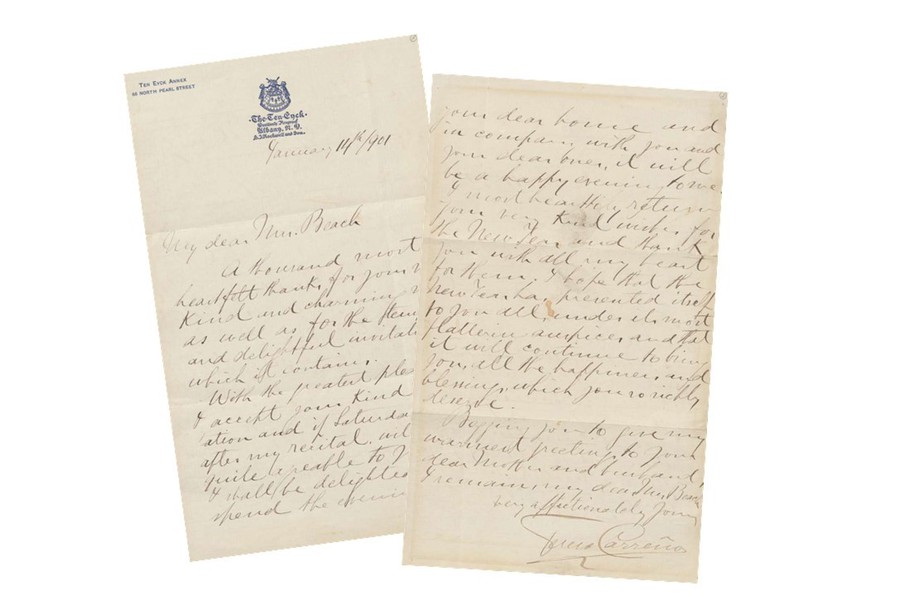 TEN EYCK ANNEX
NORTH PEARL STREET
The Ten Eyck
Albany, N.Y.
January 14th/901
My dear Mrs. Beach
A thousand most
heartfelt thanks for your
kind and charming
as well as for the
and delightful
which it contains.
With the greatest
I accept your kind
ation and if Saturday
after my recital, will
quite agreable to
I shall be delighted
spend the
your dear home and
in company with you and
your dear ones, it will
be a happy evening to me.
I most heartily return
your very kind wishes for
the New Year and thank
you with all my heart
for them. I hope that the
New Year has presented itself
to you all, under its most
auspices and that
it will continue to bring
you, all the happiness and
blessings which you so richly
deserve.
Begging you to give my
warmest greeting to your
dear Mother and husband,
I remain my dear Mrs. Beach
very affectionately yours
Teresa Carreño